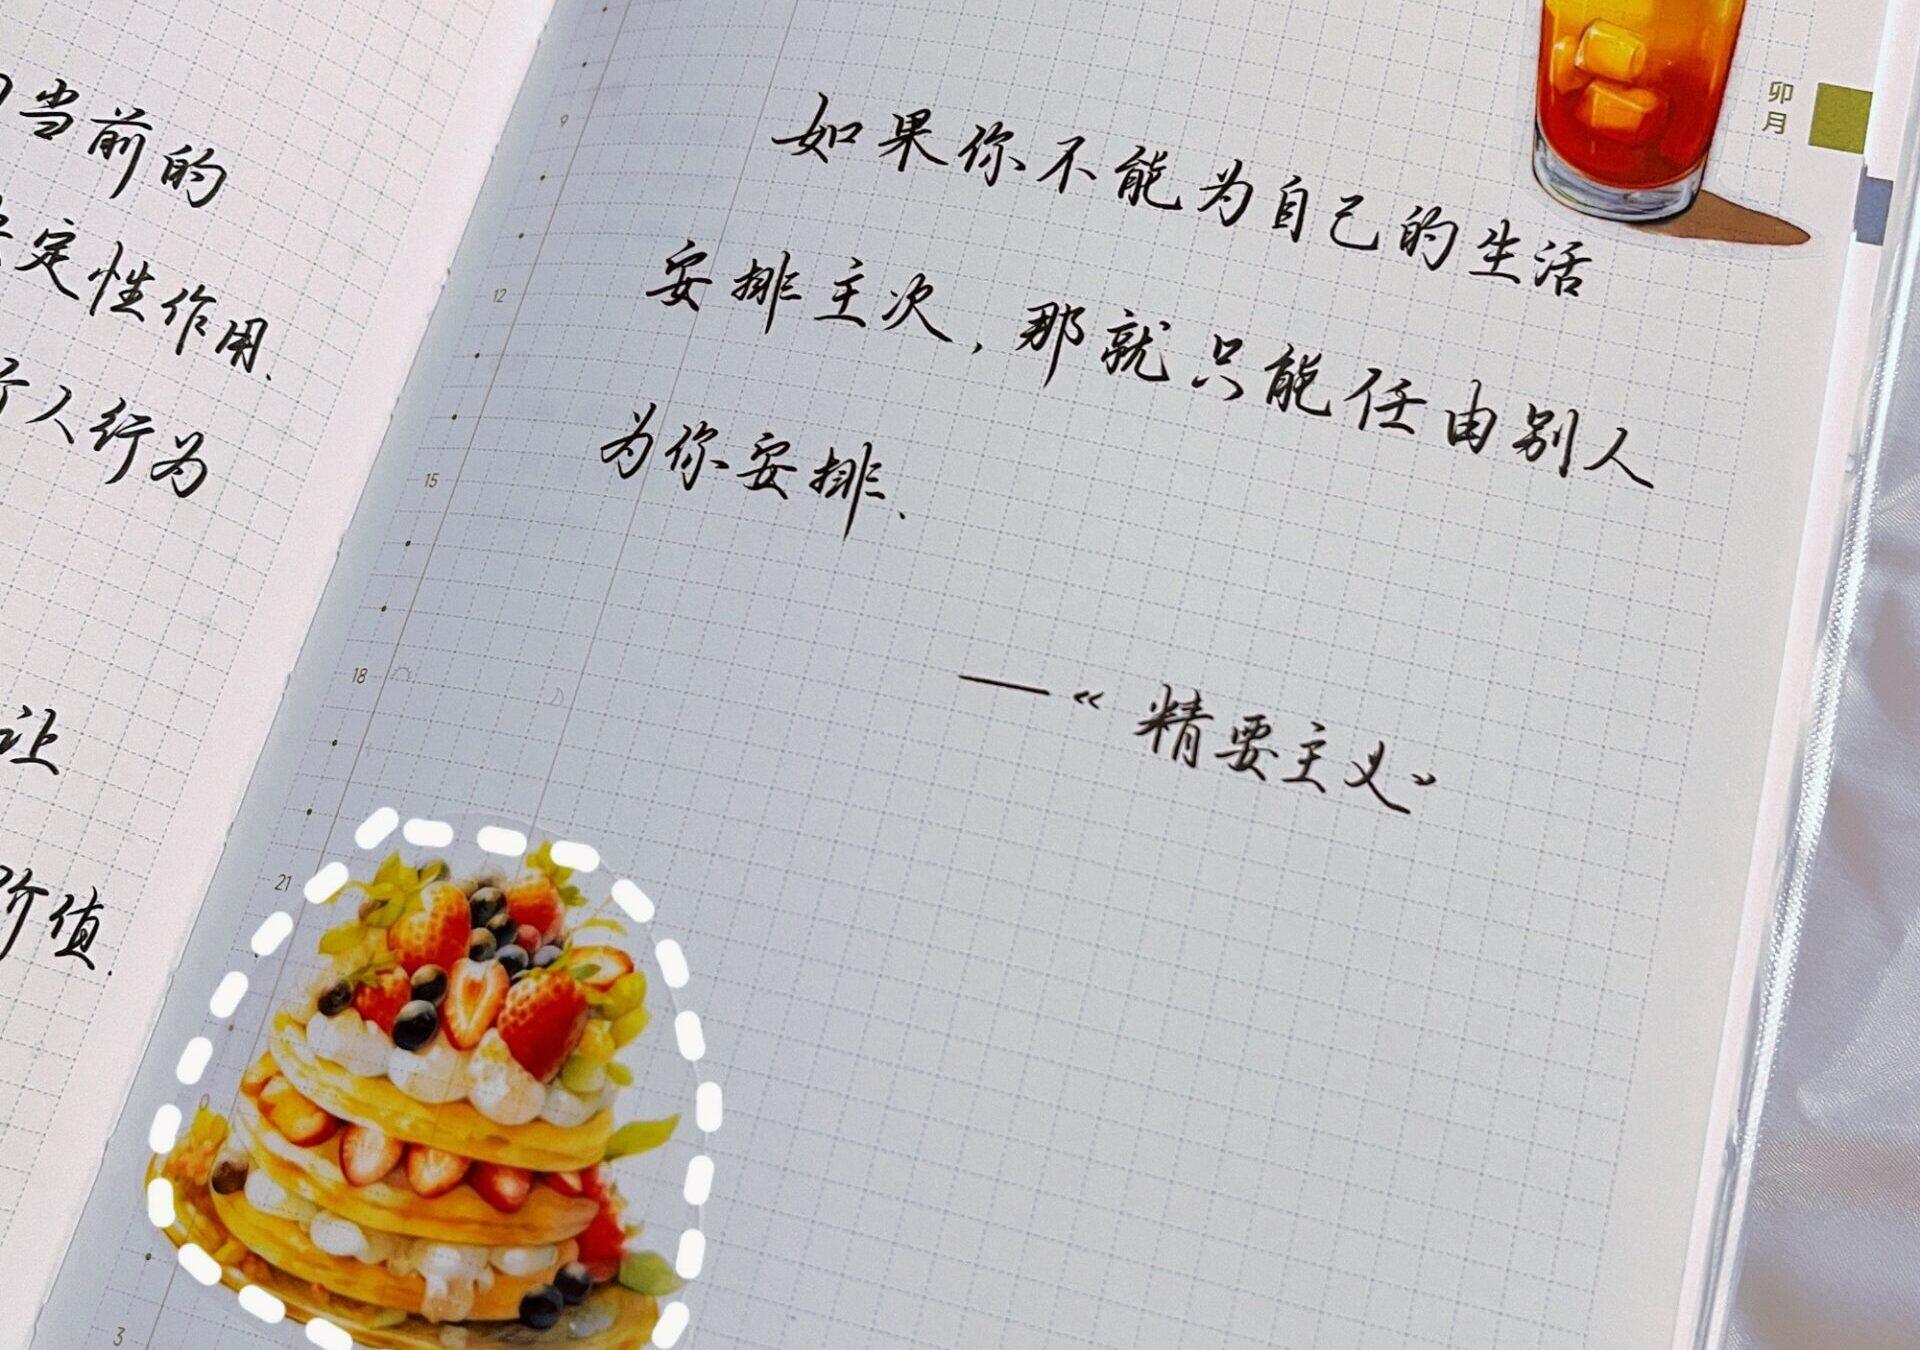 当前的
定性作用.
人行为
让
价值.
9
如果你不能为自己的生活
12
安排主次,那就只能任由别人
15
为你安排.
18
—《精要主义》
21
3
卯月